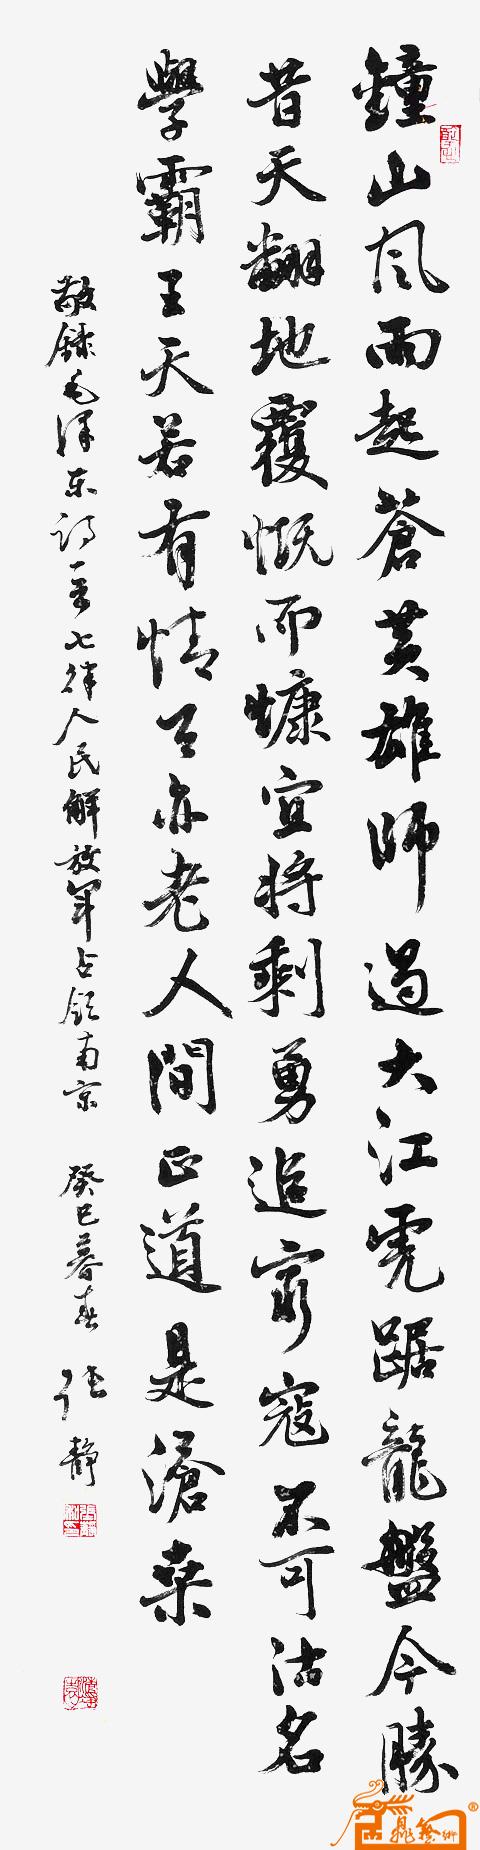 鐘山风雨起蒼黄雄師過大江虎踞龍盤今勝
昔天翻地覆慨而慷宜将剩勇追窮寇不可沽名
學霸王天若有情天亦老人間正道是滄桑
敬録毛泽东诗一首七律人民解放军占领南京 癸巳暮春 张静